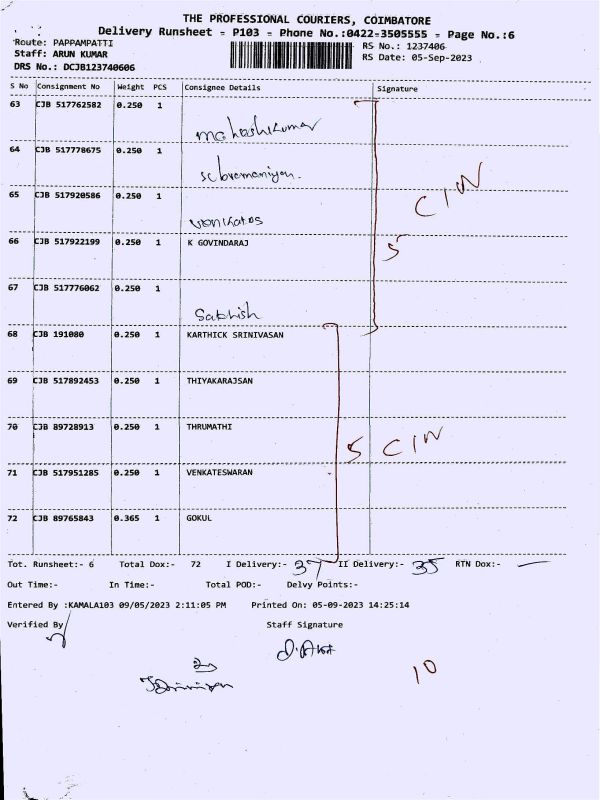 THE PROFESSIONAL COURIERS, COIMBATORE
Delivery Runsheet = P103 = Phone No.:0422-3505555 = Page No.:6
Route: PAPPAMPATTI
RS No.: 1237406
Staff: ARUN KUMAR
RS Date: 05-Sep-2023
DRS No.: DCJB123740606
S No Consignment No Weight PCS Consignee Details Signature
63 CJB 517762582 0.250 1
64 CJB 517778675 0.250 1
65 CJB 517920586 0.250 1
CIW
66 CJB 517922199 0.250 1 K GOVINDARAJ
5
67 CJB 517776062 0.250 1
Sabhish
68 CJB 191080 0.250 1 KARTHICK SRINIVASAN
69 CJB 517892453 0.250 1 THIYAKARAJSAN
70 CJB 89728913 0.250 1 THRUMATHI
5 CIW
71 CJB 517951285 0.250 1 VENKATESWARAN
72 CJB 89765843 0.365 1 GOKUL
Tot. Runsheet:- 6 Total Dox:- 72 I Delivery:- 37 II Delivery:- 35 RTN Dox:- —
Out Time:- In Time:- Total POD:- Delvy Points:-
Entered By :KAMALA103 09/05/2023 2:11:05 PM Printed On: 05-09-2023 14:25:14
Verified By Staff Signature
10